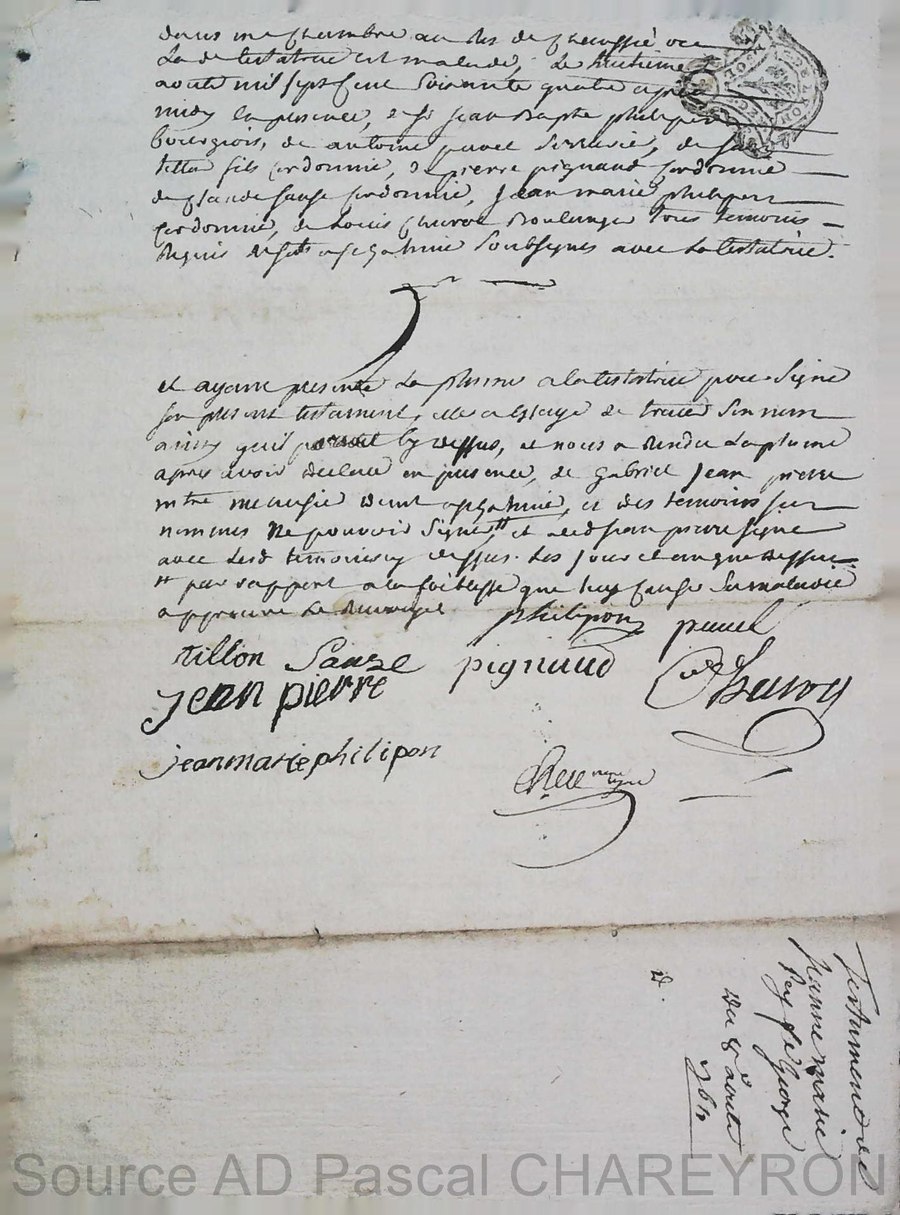 dans une chambre au res de chaussié ou
La de testatrice est malade, Le huitieme
aoust mil sept cent soixante quatre apres
midy en presence, de Sr Jean Bapte philipon
bourgeois, de antoine pauel Serrurier, de
tillon fils cordonnie, de pierre pignaud cordonnie
de Claude Sauze cordonnie, Jean marie philipon
cordonnie, de Louis Charoy Boulanger tous temoins
Requis soubsignes avec La testatrice.
et ayant presenté La plume a la testatrice pour Signe
son present testament, elle a essayé de tracer Son nom
ainsy qu'il paroit cy dessus, et nous a Rendu La plume
apres avoir declaré en presence, de gabriel Jean pierre
mtre et des temoins sus
nommes Ne pouvoir Signer, et led Jean pierre signe
avec Lesd temoins cy dessus. Les jour et an que dessus
par rapport a la foiblesse que luy cause Sa maladie
approuvé Le Renvoye
philipon pauel
tillon Sauze pignaud Charoy
jean pierre
jean marie philipon
Testament de
Jeanne marie
Rey fe George
Du 8e aoust
1764